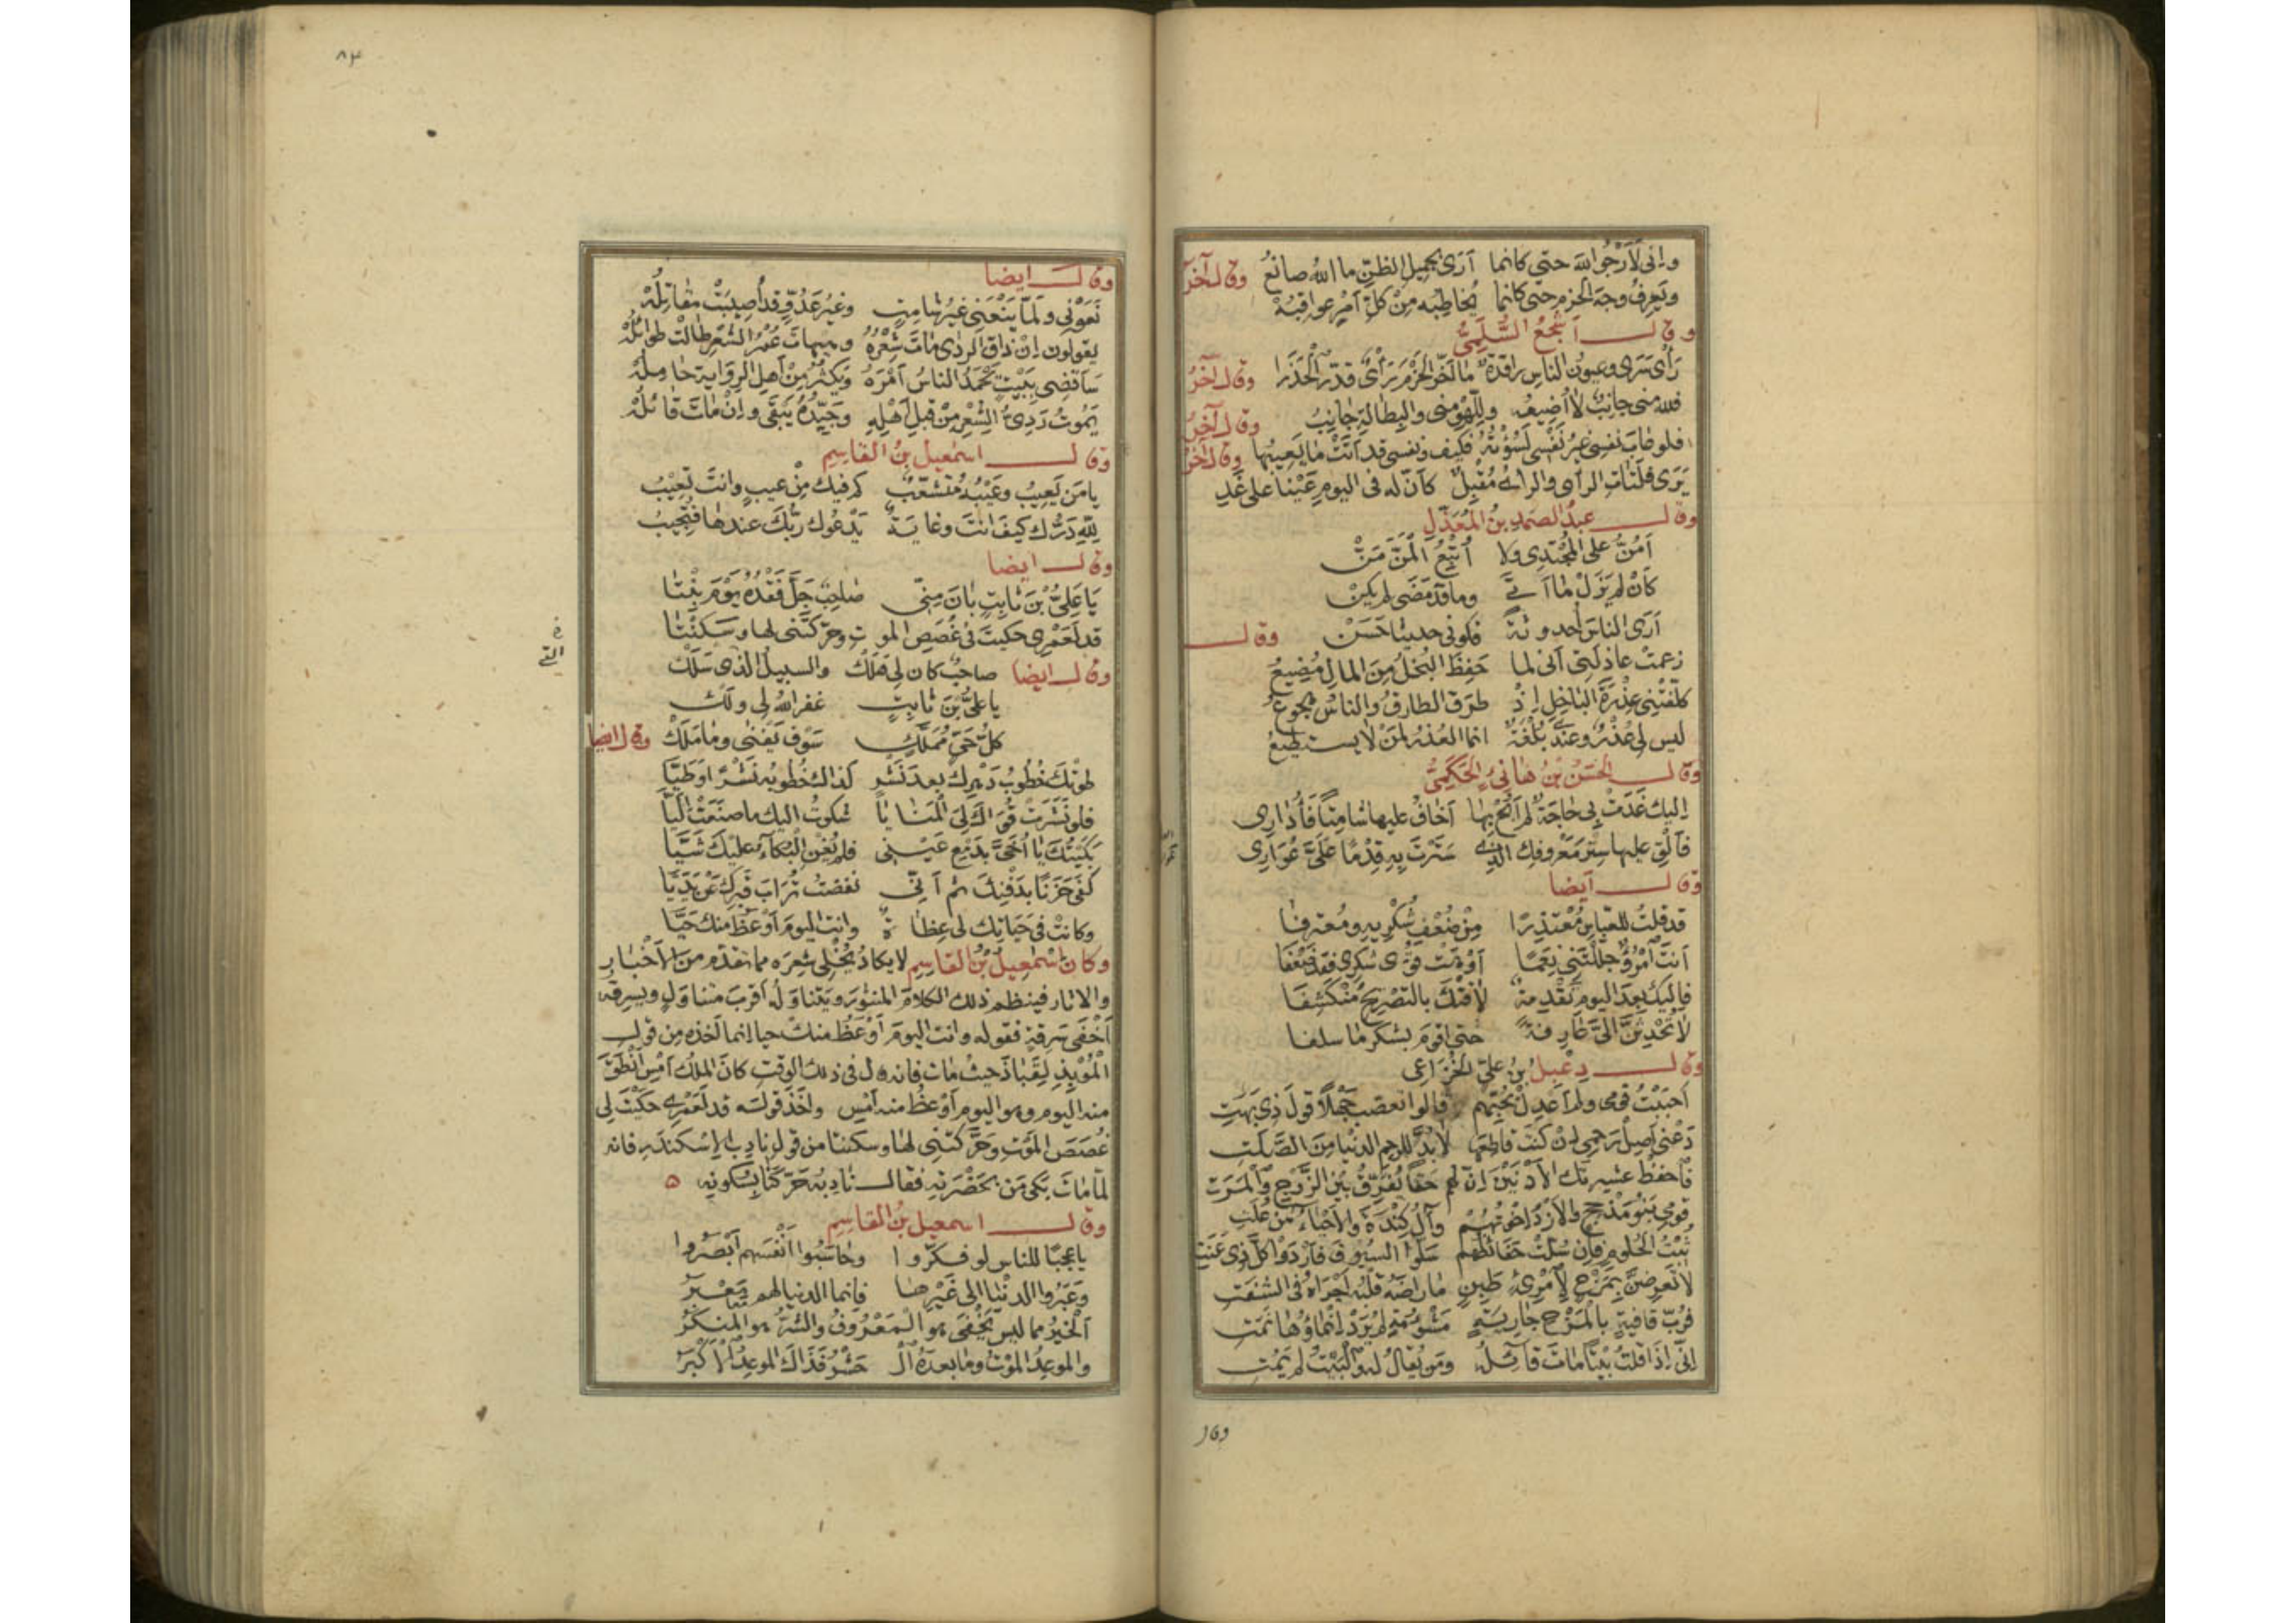 وإنى لأرجو الله حتى كانما أرى بجميل الظن ما الله صانع وقال آخر
ويعرف وجه الحزم حتى كانما تخاطبه من كل أمر عواقبه
وقال أشجع السلمي
رأى سرى وعيون الناس راقدة ما أخر الحزم رأى قدم الحذرا وقال آخر
فلله منى جانب لا أضيعه وللهو منى والبطالة جانب وقال آخر
فلو خاب نفسى غير نفسى لسؤته فكيف ونفسى قد أتت ما يعيبها وقال آخر
يرى فلتات الرأى والرأى مقبل كأن له فى اليوم عينا على غد
وقال عبد الصمد بن المعذل
أمن على المجتدى ولا أتبع المن من
كأن لم يزل ما أتى وما قد مضى لم يكن
أرى الناس أحدوثة فكونى حديثا حسن وقال
زعمت عاذلتى أنى لما حفظ البخل من المال مضيع
كلفتنى عذرة الباخل إذ طرق الطارق والناس هجوع
ليس لى عذر وعندى بلغة انما العذر لمن لا يستطيع
وقال الحسن بن هانئ الحكمى
إليك غدت بى حاجة لم أبح بها أخاف عليها شامتا فأدارى
فألق عليها ستر معروفك الذى سترت به قدما على عوارى
وقال أيضا
قد قلت للعباس معتذرا من ضعف شكريه ومعترفا
أنت امرؤ جللتنى نعما أوهت قوى شكرى فقد ضعفا
فإليك بعد اليوم تقدمة لاقتك بالتصريح منكشفا
لا تحدثن إلى عارفة حتى اقوم بشكر ما سلفا
وقال دعبل بن على الخزاعى
أحببت قومى ولم أعدل بحبهم قالوا تعصب جهلا قول ذى بهت
دعنى أصل رحمى إن كنت قاطعها لا بد للرحم الدنيا من الصلت
فاحفظ عشيرتك الأدنين إن لهم حقا تفرق بين الزوج والمرت
قومى بنو مذحج والأزد اخوتهم وآل كندة والأحياء من علت
ثبت الحلوم فإن سلت حفائظهم سلوا السيوف فأردوا كل ذى عنت
لا تعرضن بمزح لامرئ طبن ما راضه قلبه أجراه فى الشفت
فرب قافية بالمزح جارية مشؤمة لم يرد إنماؤها نمت
إنى إذا قلت بيتا مات قائله ومن يقال له والبيت لم يمت
وقال
٨٣
وقال أيضا
نعونى ولما ينعنى غير شامت وغير عدو قد أصيبت مقاتله
يقولون إن ذاق الردى مات شعره وهيهات عمر الشعر طالت طوائله
سأقضى ببيت يحمد الناس أمره ويكثر من أهل الرواية حامله
يموت ردئ الشعر من قبل أهله وجيده يبقى وإن مات قائله
وقال اسمعيل بن القاسم
يا من يعيب وعيبه متشعب كم فيك من عيب وانت تعيب
لله درك كيف انت وغاية يدعوك ربك عندها فتجيب
وقال ايضا
يا على بن ثابت بان منى صاحب جل فقده يوم بنتا
قد لعمرى حكيت لى غصص الموت وحركتنى لها وسكنتا
فى
التى
وقال ايضا صاحب كان لى هلك والسبيل الذى سلك
يا على بن ثابت غفر الله لى ولك
كل حى مملك سوف يفنى وما ملك وقال ايضا
طوتك خطوب دهرك بعد نشر كذاك خطوبه نشرا وطيا
فلو نشرت قواك لى المنايا شكوت إليك ما صنعت إليا
بكيتك يا أخى بدمع عينى فلم يغن البكاء عليك شيا
كفى حزنا بدفنك ثم أنى نفضت تراب قبرك عن يديا
وكانت فى حياتك لى عظات وانت اليوم أوعظ منك حيا
وكان اسمعيل بن القاسم لا يكاد يخلى شعره مما تقدم من الأخبار
والاثار فينظم ذلك الكلام المنثور ويتناوله أقرب متناول ويسرقه
أخفى سرقة فقوله وانت اليوم أوعظ منك حيا إنما أخذه من قول
الموبذ لقباذ حيث مات فانه قال فى ذلك الوقت كان الملك أمس أنطق
منه اليوم وهو اليوم أوعظ منه أمس وأخذ قوله قد لعمرى حكيت لى
غصص الموت وحركتنى لها وسكنتا من قول نادب الإسكندر فانه
لما مات بكى من بحضرته فقال نادبه حركنا بسكونه ه
وقال اسمعيل بن القاسم
يا عجبا للناس لو فكروا وحاسبوا أنفسهم أبصروا
وعبروا الدنيا إلى غيرها فإنما الدنيا لهم معبر
الخير مما ليس يخفى هو المعروف والشر هو المنكر
والموعد الموت وما بعده ال حشر فذاك الموعد الأكبر